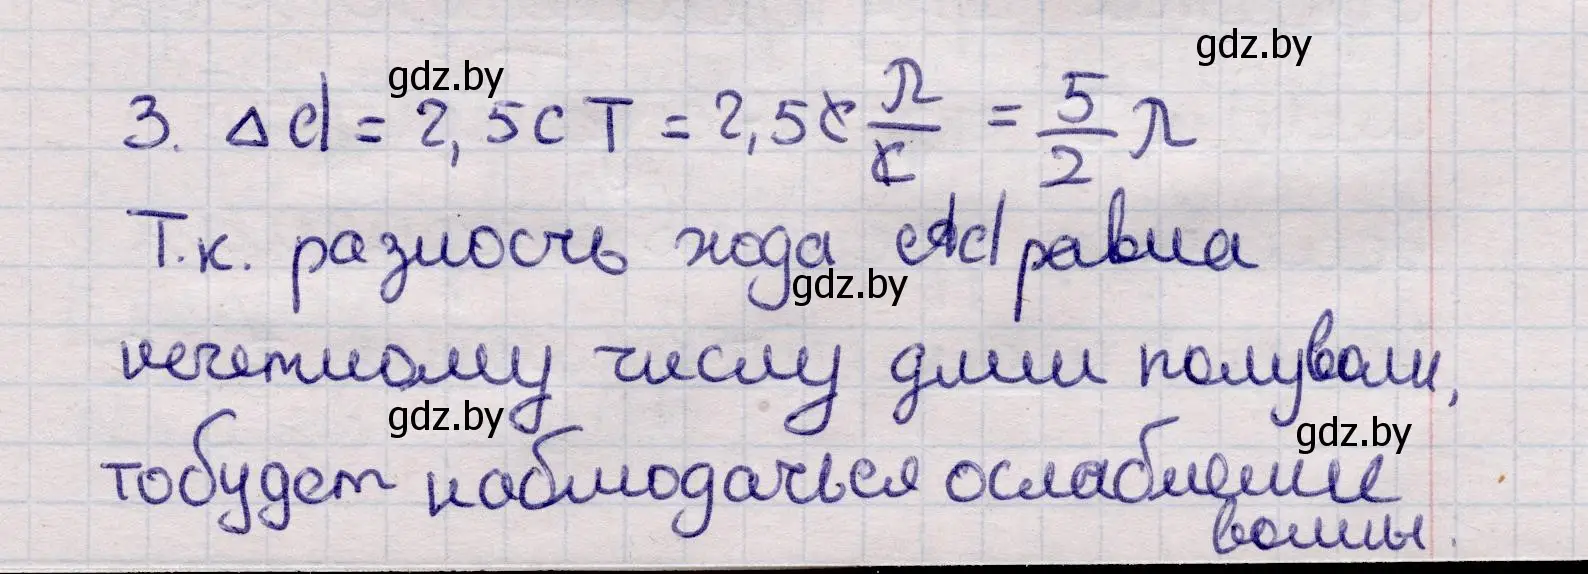 gdz.by
gdz.by
3. Δd = 2,5cT = 2,5c λ/c = 5/2 λ
Т.к. разность хода Δd равна
gdz.by
нечетному числу длин полуволн,
gdz.by
gdz.by
то будет наблюдаться ослабление
волны.